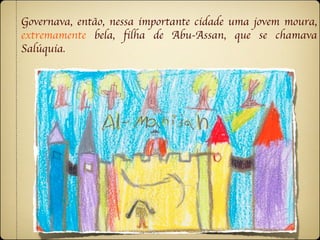 Governava, então, nessa importante cidade uma jovem moura,
extremamente bela, filha de Abu-Assan, que se chamava
Salúquia.
Al-Manijah